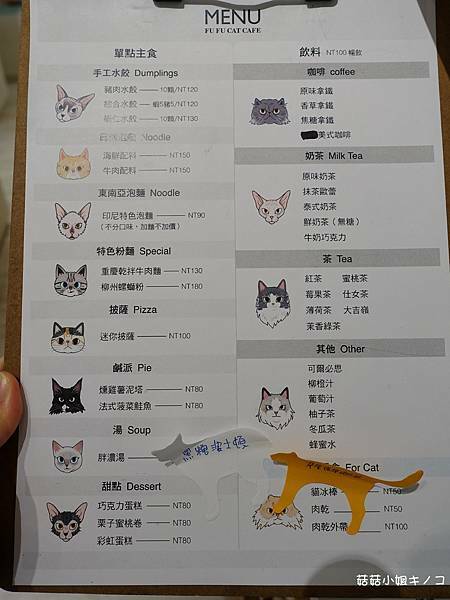 MENU
FU FU CAT CAFE
單點主食
手工水餃 Dumplings
豬肉水餃 10顆/NT120
綜合水餃 蝦5豬5/NT120
蝦仁水餃 10顆/NT130
泡麵 Noodle
海鮮配料 NT150
牛肉配料 NT150
東南亞泡麵 Noodle
印尼特色泡麵 NT90
(不分口味，加麵不加價)
特色粉麵 Special
重慶乾拌牛肉麵 NT130
柳州螺螄粉 NT180
披薩 Pizza
迷你披薩 NT100
鹹派 Pie
燻雞薯泥塔 NT80
法式菠菜鮭魚 NT80
湯 Soup
胖濃湯
黑糖波士頓
甜點 Dessert
巧克力蛋糕 NT80
栗子蜜桃卷 NT80
彩虹蛋糕 NT80
飲料 NT100 暢飲
咖啡 coffee
原味拿鐵
香草拿鐵
焦糖拿鐵
美式咖啡
奶茶 Milk Tea
原味奶茶
抹茶歐蕾
泰式奶茶
鮮奶茶（無糖）
牛奶巧克力
茶 Tea
紅茶 蜜桃茶
莓果茶 仕女茶
薄荷茶 大吉嶺
茉香綠茶
其他 Other
可爾必思
柳橙汁
葡萄汁
柚子茶
冬瓜茶
蜂蜜水
For Cat
貓冰棒 NT50
肉乾 NT50
肉乾外帶 NT100
菇菇小姐キノコ